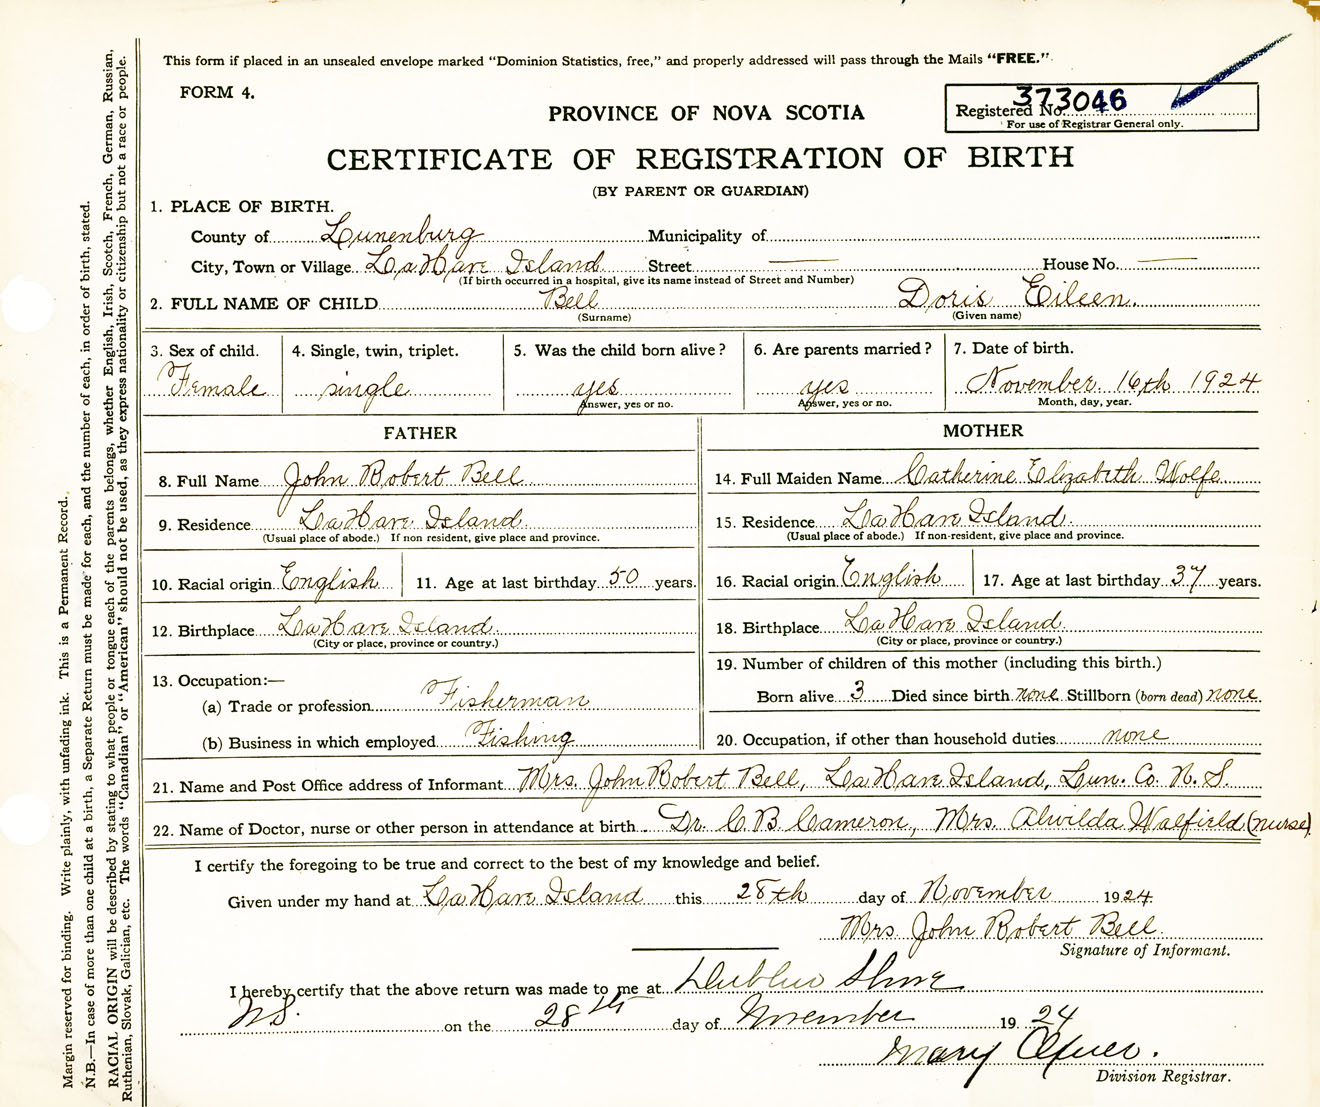 This form if placed in an unsealed envelope marked "Dominion Statistics, free," and properly addressed will pass through the Mails "FREE."
FORM 4.
PROVINCE OF NOVA SCOTIA
Registered No. 373046
For use of Registrar General only.
CERTIFICATE OF REGISTRATION OF BIRTH
(BY PARENT OR GUARDIAN)
1. PLACE OF BIRTH.
County of Lunenburg Municipality of
City, Town or Village LaHave Island Street — House No. —
(If birth occurred in a hospital, give its name instead of Street and Number)
2. FULL NAME OF CHILD Bell Doris Eileen.
(Surname) (Given name)
3. Sex of child. 4. Single, twin, triplet. 5. Was the child born alive? 6. Are parents married? 7. Date of birth.
Female single yes yes November 16th 1924
Answer, yes or no. Answer, yes or no. Month, day, year.
FATHER MOTHER
8. Full Name John Robert Bell 14. Full Maiden Name Catherine Elizabeth Wolfe
9. Residence LaHave Island. 15. Residence LaHave Island.
(Usual place of abode.) If non resident, give place and province. (Usual place of abode.) If non-resident, give place and province.
10. Racial origin English 11. Age at last birthday 50 years. 16. Racial origin English 17. Age at last birthday 37 years.
12. Birthplace LaHave Island. 18. Birthplace LaHave Island.
(City or place, province or country.) (City or place, province or country.)
13. Occupation:— 19. Number of children of this mother (including this birth.)
(a) Trade or profession Fisherman Born alive 3 Died since birth none Stillborn (born dead) none.
(b) Business in which employed Fishing 20. Occupation, if other than household duties none
21. Name and Post Office address of Informant Mrs. John Robert Bell, LaHave Island, Lun. Co. N. S.
22. Name of Doctor, nurse or other person in attendance at birth Dr. C. B. Cameron, Mrs. Alwilda Walfield (nurse)
I certify the foregoing to be true and correct to the best of my knowledge and belief.
Given under my hand at LaHave Island this 28th day of November 1924
Mrs. John Robert Bell.
Signature of Informant.
I hereby certify that the above return was made to me at Dublin Shore
N.S. on the 28th day of November 1924
Mary
Division Registrar.
Margin reserved for binding. Write plainly, with unfading ink. This is a Permanent Record.
N.B.—In case of more than one child at a birth, a Separate Return must be made for each, and the number of each, in order of birth, stated.
RACIAL ORIGIN will be described by stating to what people or tongue each of the parents belongs, whether English, Irish, Scotch, French, German, Russian,
Ruthenian, Slovak, Galician, etc. The words "Canadian" or "American" should not be used, as they express nationality or citizenship but not a race or people.